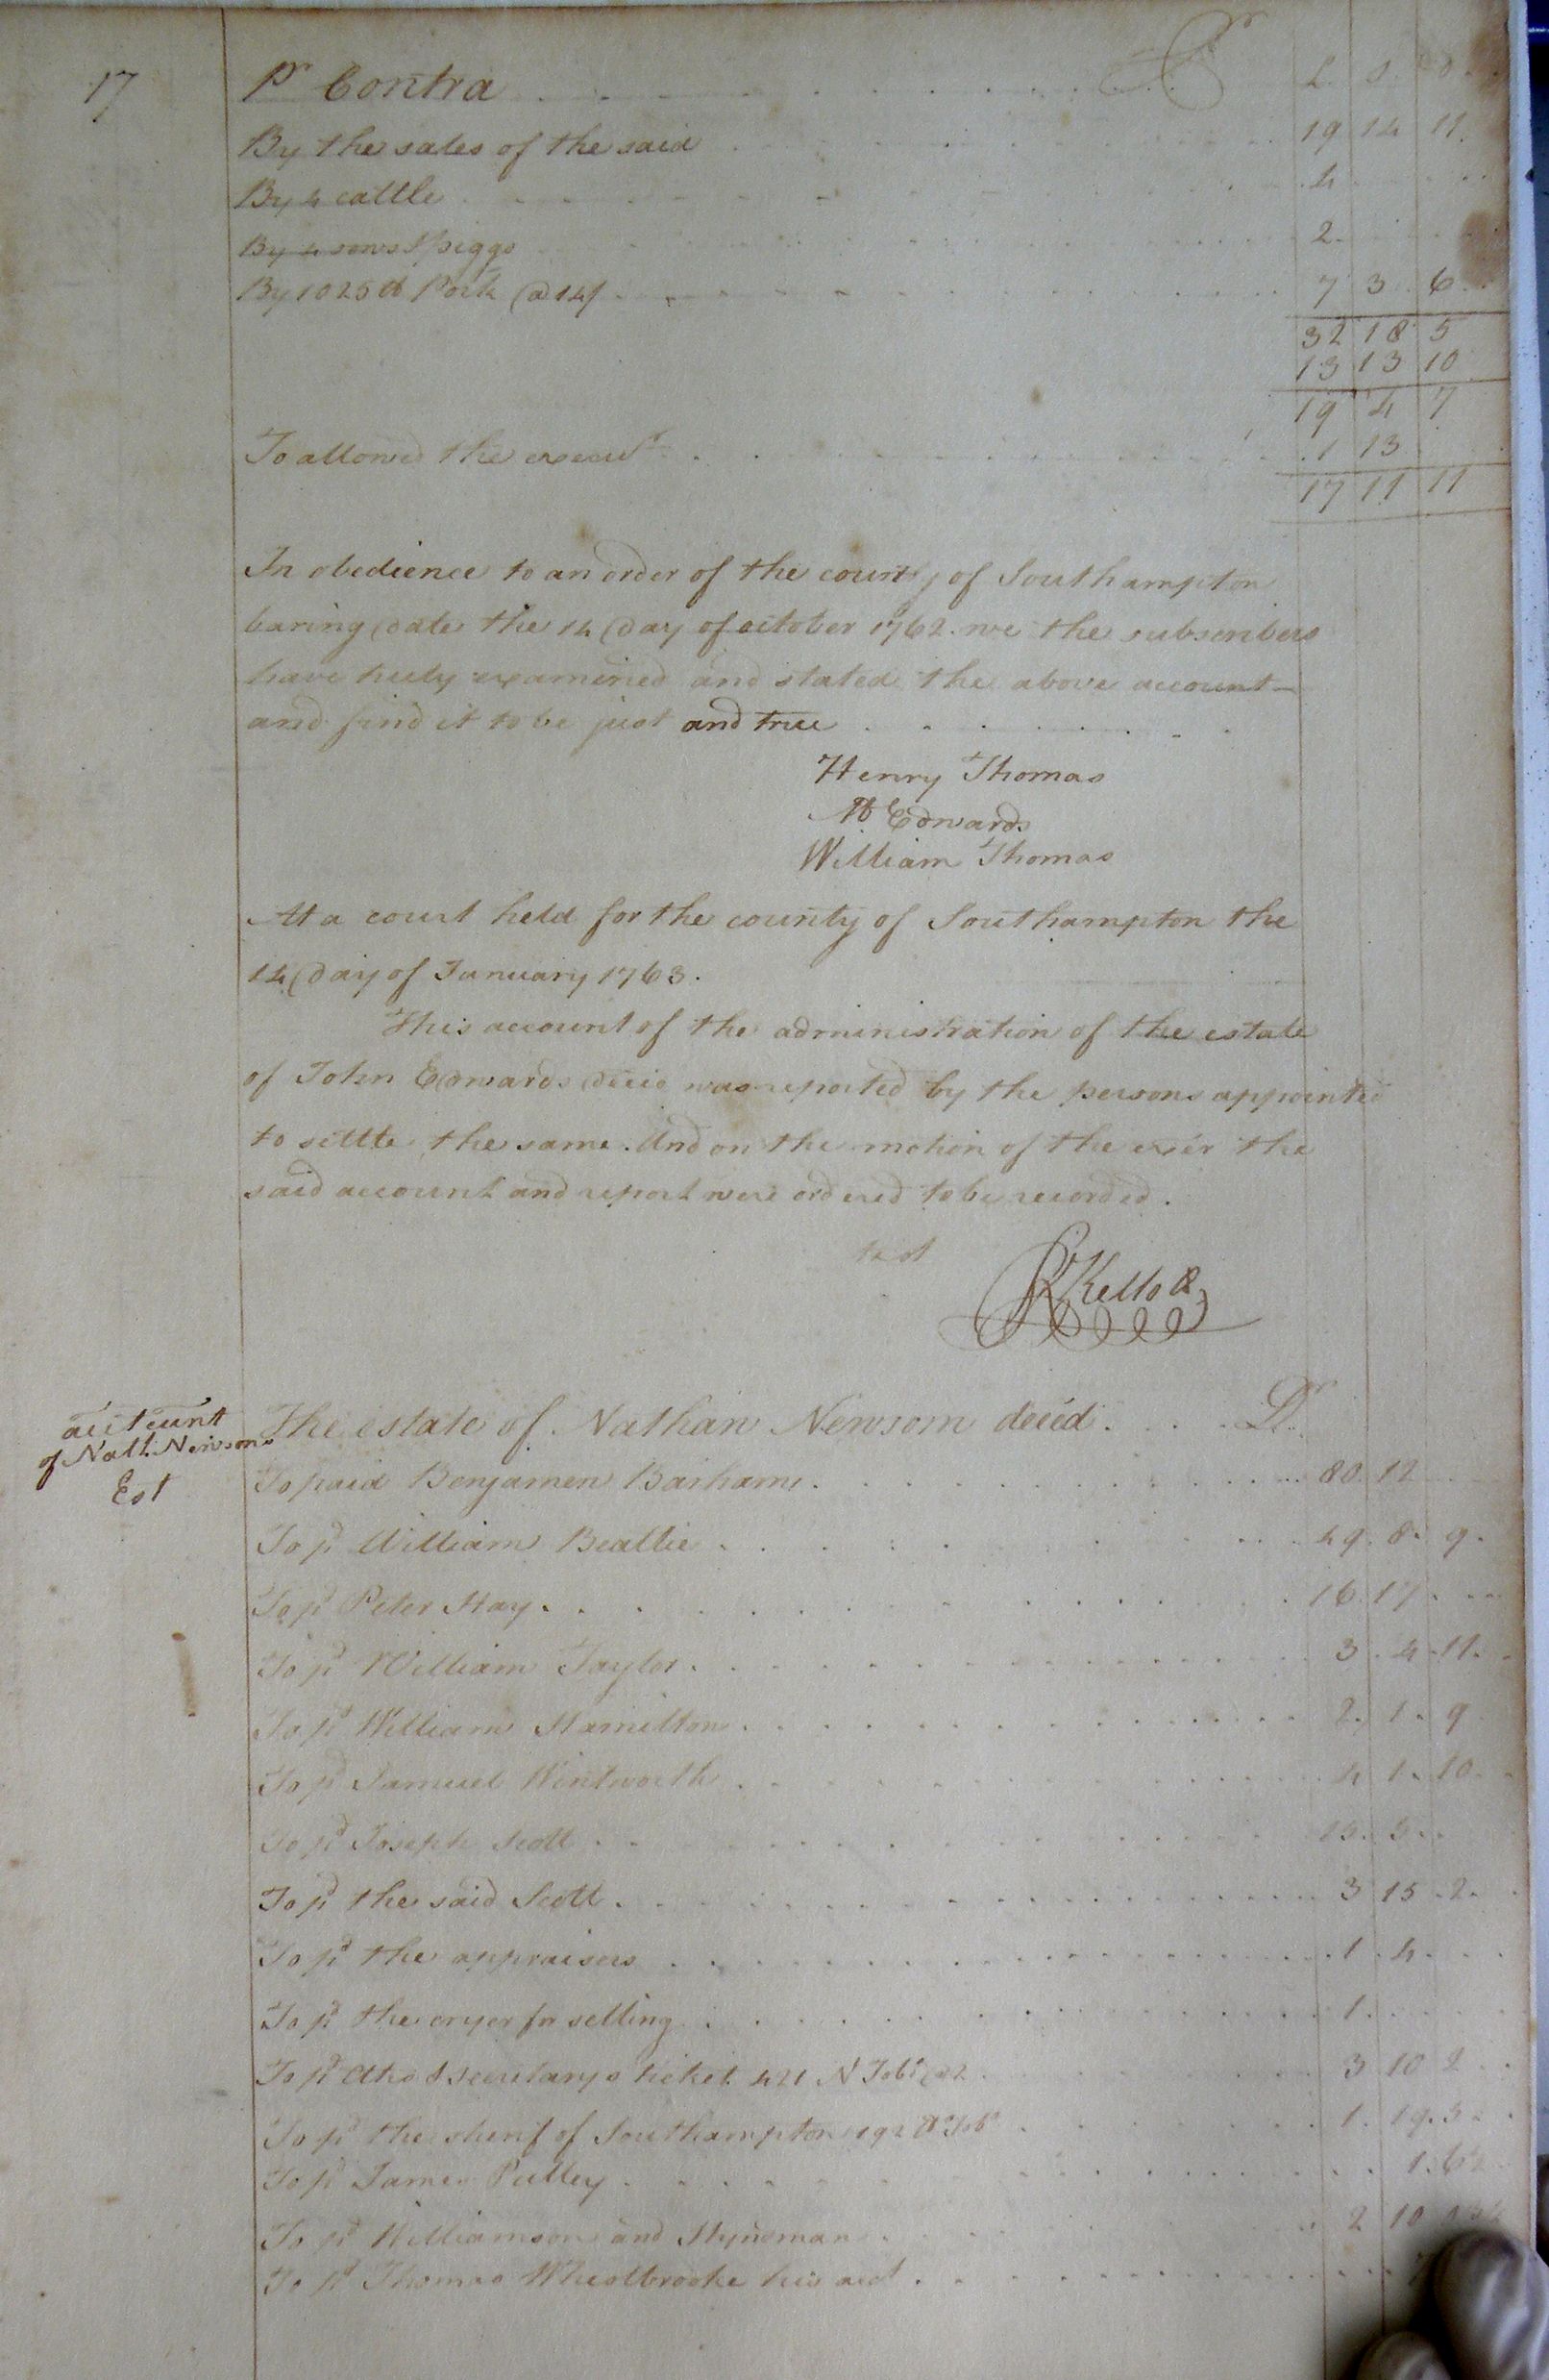 17 Pr Contra Cr L S D
By the sales of the said 19 14 11
By 4 cattle 4
By 4 sows & piggs 2
By 1025 lb Pork @ 14/ 7 3 6
32 18 5
13 13 10
19 4 7
To allowed the execut 1 13
17 11 11
In obedience to an order of the county of Southampton
baring date the 14 day of october 1762. we the subscribers
have truly examined and stated the above account
and find it to be just and true
Henry Thomas
Edwards
William Thomas
At a court held for the county of Southampton the
14 day of January 1763.
This account of the administration of the estate
of John Edwards decd was reported by the persons appointed
to settle the same. And on the motion of the exer the
said account and report were ordered to be recorded.
test
R Kello
account
of Nath. Newsons
Est
The estate of Nathan Newsom decd. Dr
To paid Benjamen Barham 80 12
To pd William Beallie 49 8 9
To pd Peter Hay 16 17
To pd William Taylor 3 4 11
To pd William Hamilton 2 1 9
To pd Samuel Wentworth 4 1 10
To pd Joseph Scott
To pd the said Scott 3 15 2
To pd the appraisers 1 4
To pd the cryer for selling 1
To pd Secretarys ticket 421 3 10 2
To pd the sherif of Southampton 192 Tobo 1 19
To pd James Pulley 1
To pd Williamson and Hynsman 2 10
To pd Thomas Whestbrooke his acct